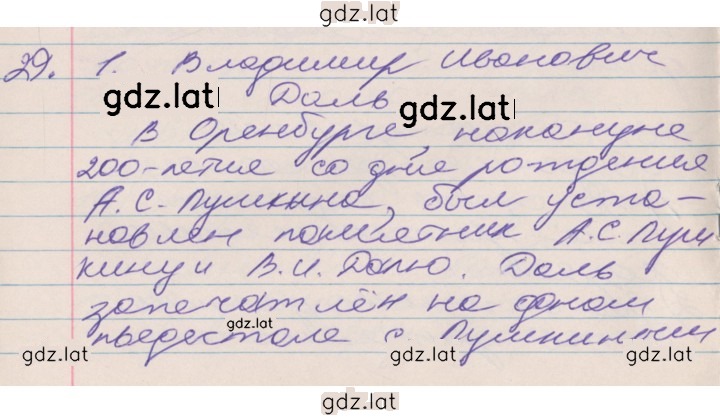 gdz.lat
29. 1. Владимир Иванович
gdz.lat Даль gdz.lat
В Оренбурге, накануне
200-летие со дня рождения
А.С. Пушкина, был уста-
новлен памятник А.С. Пуш
кину и В.И. Далю. Даль
запечатлён на одном
gdz.lat
пьедестале с Пушкиным
gdz.lat gdz.lat
gdz.lat